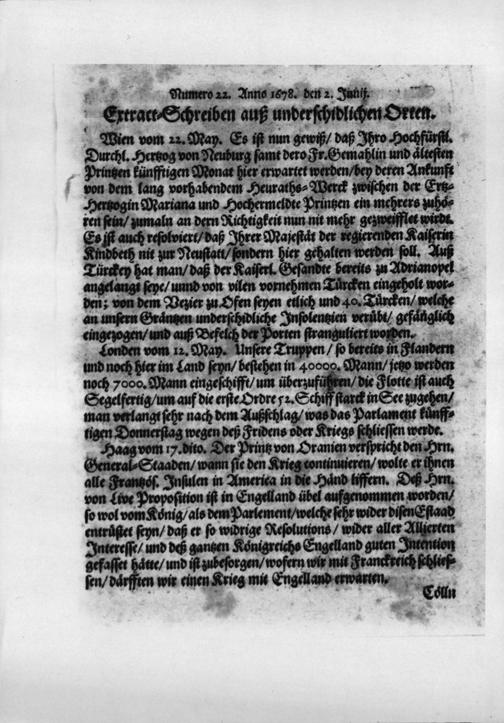 Numero 22. Anno 1678. den 2. Junij.
Extract-Schreiben auß underschidlichen Orten.
Wien vom 22. May. Es ist nun gewiß/ daß Ihro Hochfürstl.
Durchl. Hertzog von Neuburg samt dero Fr. Gemahlin und ältesten
Printzen künfftigen Monat hier erwartet werden/ bey deren Ankunft
von dem lang vorhabendem Heuraths-Werck zwischen der Ertz-
Hertzogin Mariana und Hochermeldte Printzen ein mehrers zuhö-
ren sein/ zumaln an dern Richtigkeit nun nit mehr gezweifflet wirdt.
Es ist auch resolviert/ daß Ihrer Majestät der regierenden Kaiserin
Kindbeth nit zur Neustatt/ sondern hier gehalten werden soll. Auß
Türckey hat man/ daß der Kaiserl. Gesandte bereits zu Adrianopel
angelangt seye/ unnd von vilen vornehmen Türcken eingeholt wor-
den; von dem Vezier zu Ofen seyen etlich und 40. Türcken/ welche
an unsern Gräntzen underschidliche Insolentien verübt/ gefänglich
eingezogen/ und auß Befelch der Porten stranguliert worden.
Londen vom 12. May. Unsere Truppen/ so bereits in Flandern
und noch hier im Land seyn/ bestehen in 40000. Mann/ jetzo werden
noch 7000. Mann eingeschifft/ um überzuführen/ die Flotte ist auch
Segelfertig/ um auf die erste Ordre 52. Schiff starck in See zugehen/
man verlangt sehr nach dem Außschlag/ was das Parlament künff-
tigen Donnerstag wegen deß Fridens oder Kriegs schliessen werde.
Haag vom 17. dito. Der Printz von Oranien verspricht den Hrn.
General-Staaden/ wann sie den Krieg continuieren/ wolte er ihnen
alle Frantzös. Insulen in America in die Händ liffern. Deß Hrn.
von Live Proposition ist in Engelland übel aufgenommen worden/
so wol vom König/ als dem Parlement/ welche sehr wider disen Estaad
entrüstet seyn/ daß er so widrige Resolutions/ wider aller Allierten
Interesse/ und deß gantzen Königreichs Engelland guten Intention
gefasset hätte/ und ist zubesorgen/ wofern wir mit Franckreich schlies-
sen/ därfften wir einen Krieg mit Engelland erwarten.
Cölln